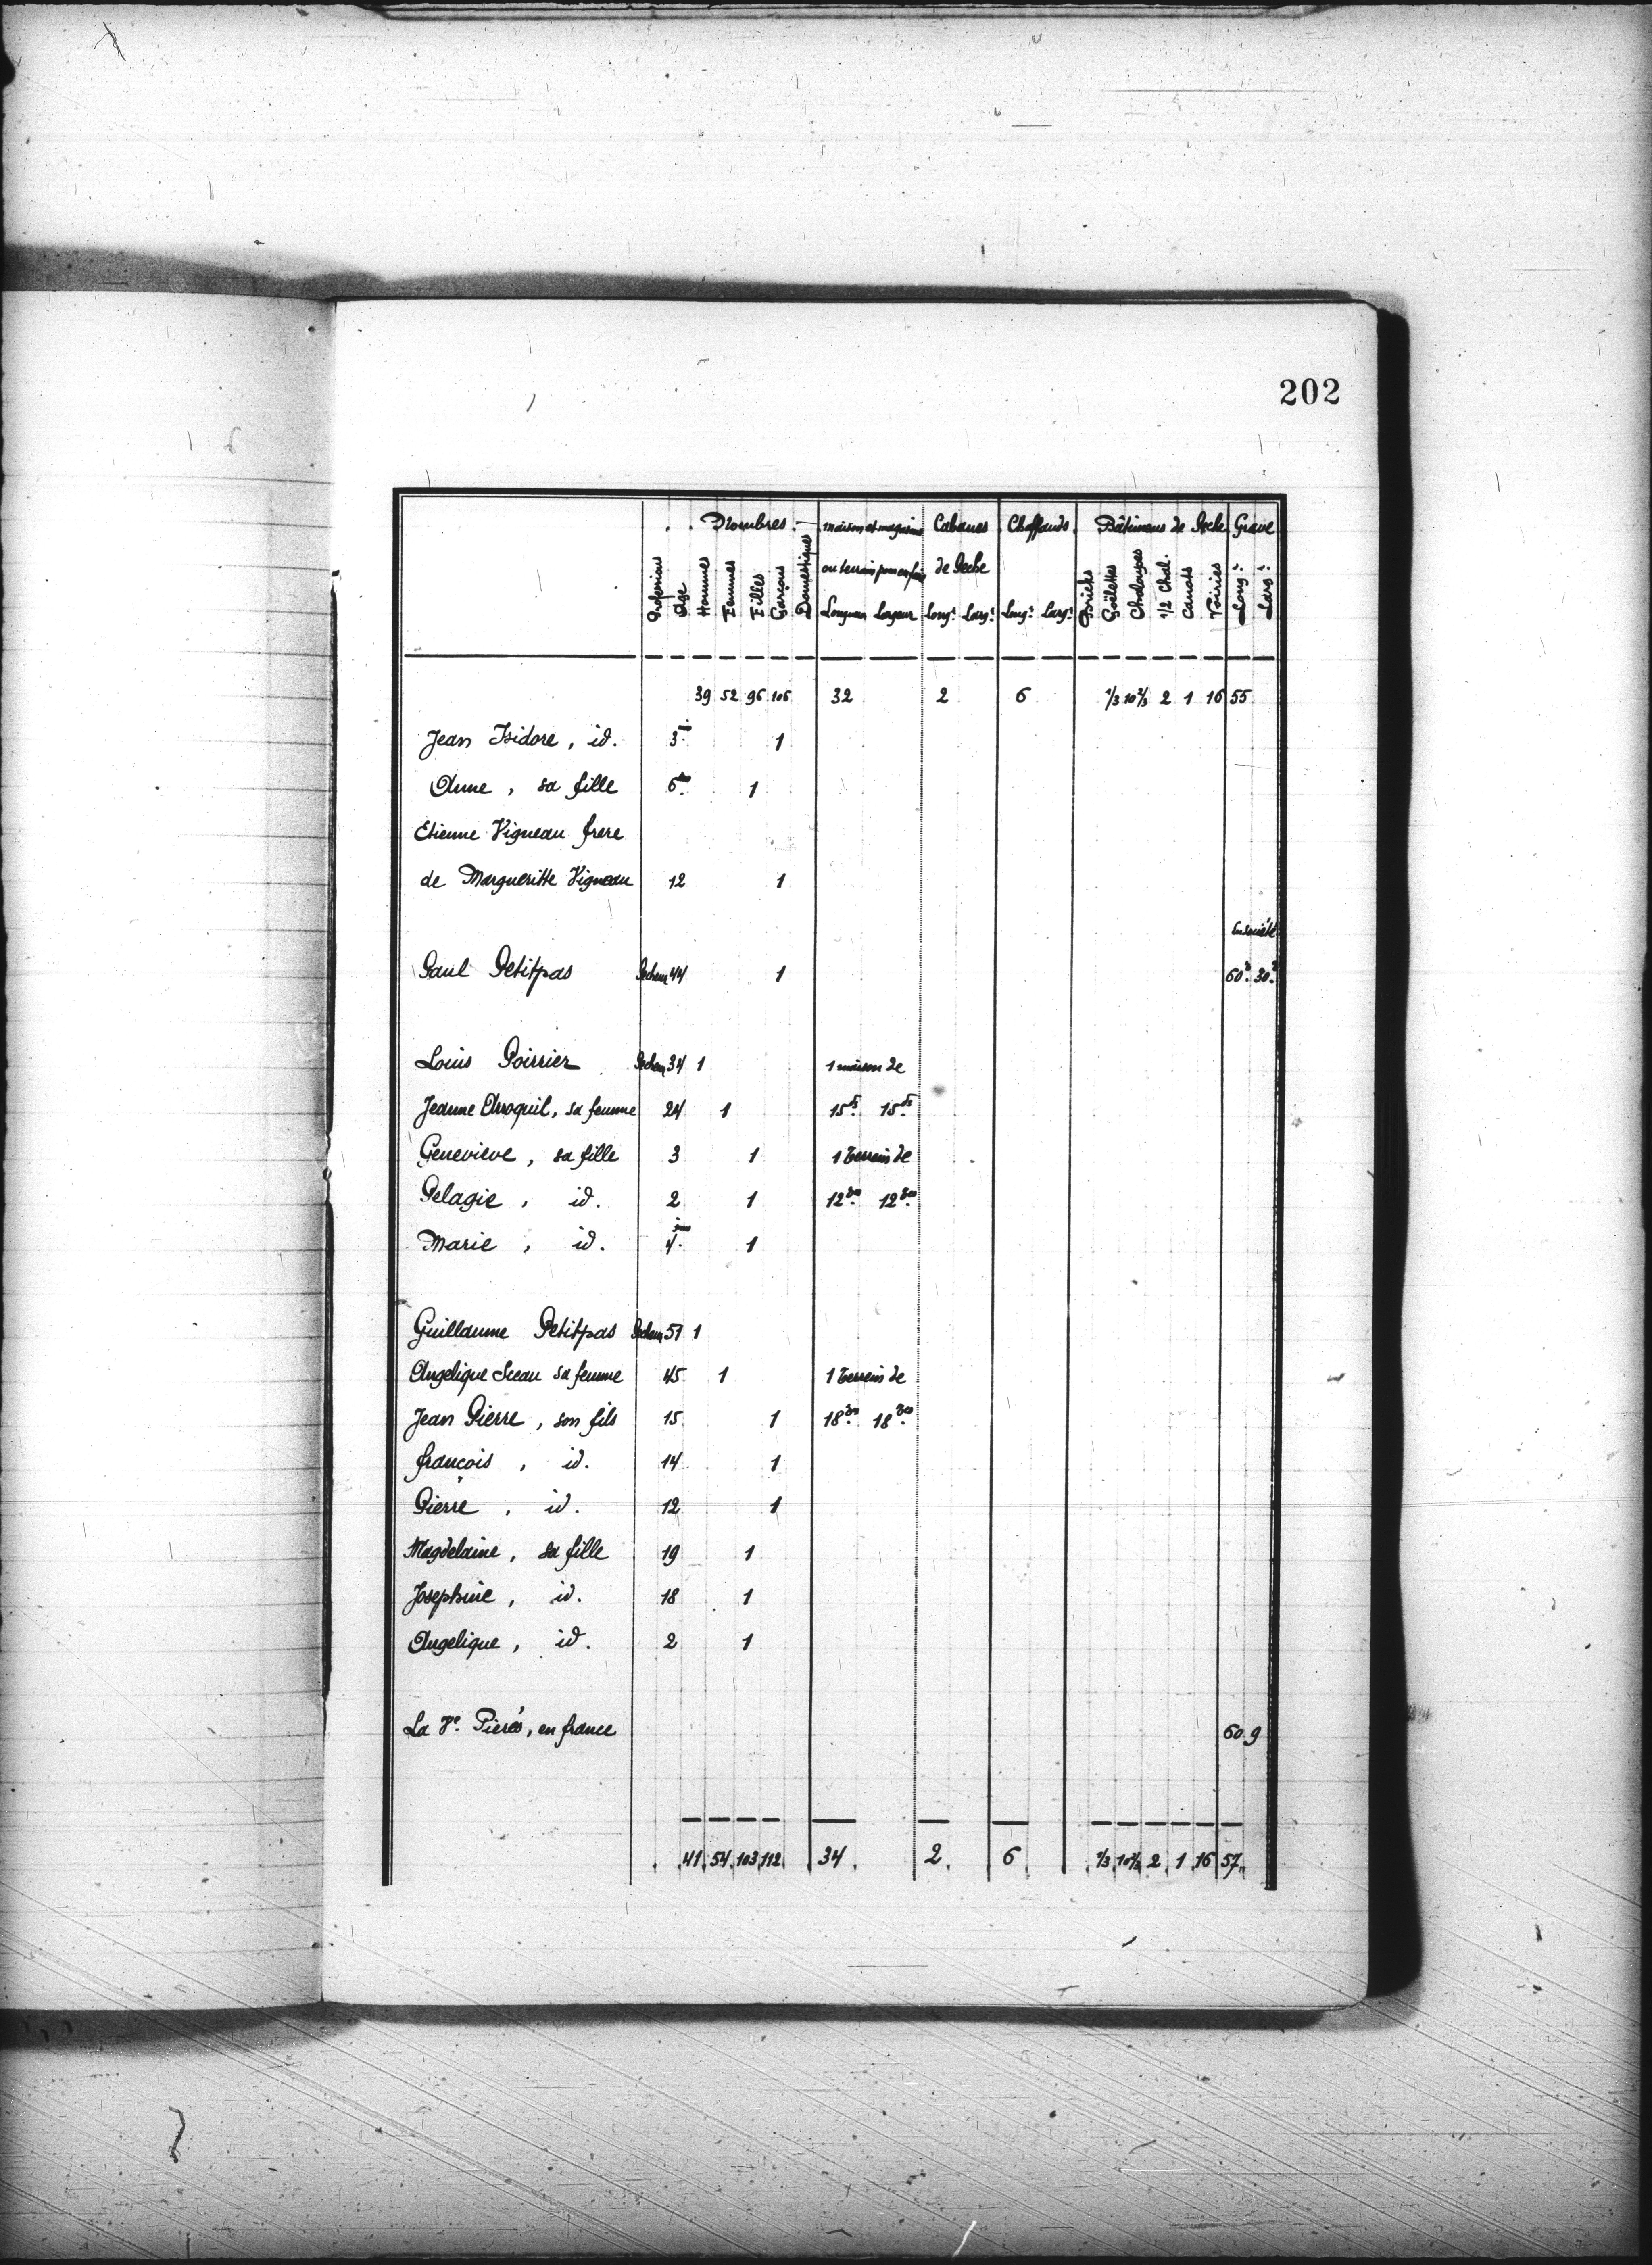 202
Nombres. maison et magasins Cabanes Chaffauds. Bâtimens de Peche Grave
ou terrain pour en faire de Peche
Professions Age Hommes Femmes Filles Garçons Domestiques Longueur Largeur Long.r Larg.r Long.r Larg.r Bricks Goëlettes Chaloupes 1/2 Chal. Canots Voiries Long.r Larg.r
39 52 96 106 32 2 6 1/3 10 2/3 2 1 16 55
Jean Isidore, id. 3 1
Anne, sa fille 6 1
Etienne Vigneau frere
de Margueritte Vigneau 12 1
En société
Paul Petitpas Pecheur 44 1 60 30
Louis Poirrier Pecheur 34 1 1 maison de
Jeanne sa femme 24 1 15 15
Genevieve, sa fille 3 1 1 Terrein de
Pelagie, id. 2 1 12 12
Marie, id. 4 1
Guillaume Petitpas Pecheur 51 1
Angelique sa femme 45 1 1 Terrein de
Jean Pierre, son fils 15 1 18 18
françois, id. 14 1
Pierre, id. 12 1
Magdelaine, sa fille 19 1
Josephine, id. 18 1
Angelique, id. 2 1
La Ve. en france 60 9
41 54 103 112 34 2 6 1/3 10 2/3 2 1 16 57